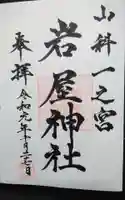 山科一之宮
岩屋神社
奉拝
令和元年十月二七日